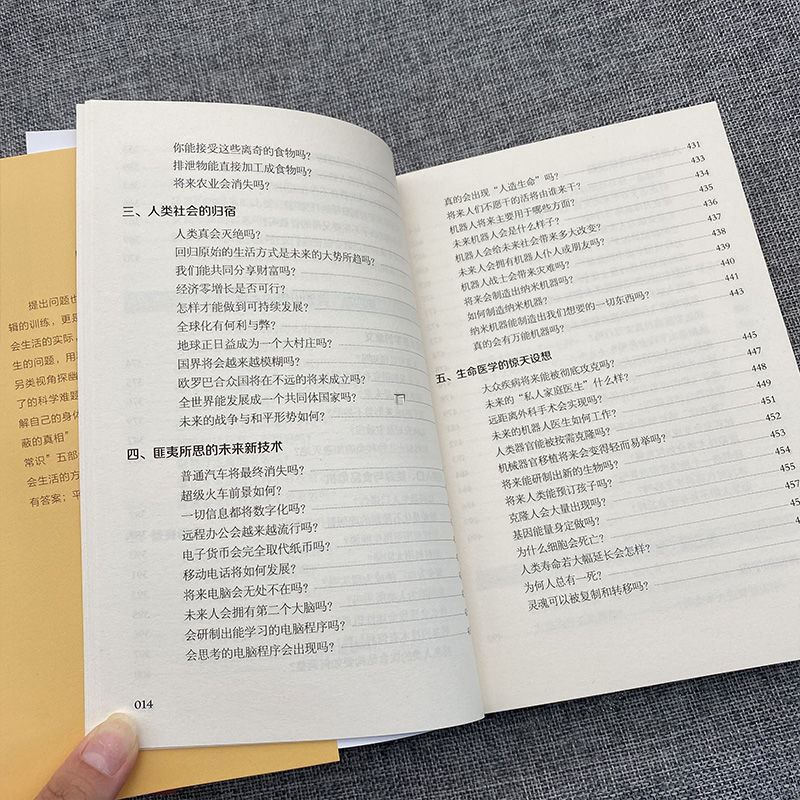 提出问题也
辑的训练，更是
会生活的实际，
生的问题，用
另类视角探幽
了的科学难题
解自己的身体
蔽的真相”
常识”五部
会生活的方
有答案；平
你能接受这些离奇的食物吗？
排泄物能直接加工成食物吗？
将来农业会消失吗？
三、人类社会的归宿
人类真会灭绝吗？
回归原始的生活方式是未来的大势所趋吗？
我们能共同分享财富吗？
经济零增长是否可行？
怎样才能做到可持续发展？
全球化有何利与弊？
地球正日益成为一个大村庄吗？
国界将会越来越模糊吗？
欧罗巴合众国将在不远的将来成立吗？
全世界能发展成一个共同体国家吗？
未来的战争与和平形势如何？
四、匪夷所思的未来新技术
普通汽车将最终消失吗？
超级火车前景如何？
一切信息都将数字化吗？
远程办公会越来越流行吗？
电子货币会完全取代纸币吗？
移动电话将如何发展？
将来电脑会无处不在吗？
未来人会拥有第二个大脑吗？
会研制出能学习的电脑程序吗？
会思考的电脑程序会出现吗？
014
431
真的会出现“人造生命”吗？ 433
将来人们不愿干的活将由谁来干？ 434
机器人将来主要用于哪些方面？ 435
未来机器人会是什么样子？ 436
机器人会给未来社会带来多大改变？ 437
未来人会拥有机器人仆人或朋友吗？ 438
机器人战士会带来灾难吗？ 439
将来会制造出纳米机器吗？ 440
如何制造纳米机器？ 441
纳米机器能制造出我们想要的一切东西吗？ 442
真的会有万能机器吗？ 443
五、生命医学的惊天设想
大众疾病将来能被彻底攻克吗？ 445
未来的“私人家庭医生”什么样？ 447
远距离外科手术会实现吗？ 448
未来的机器人医生如何工作？ 449
人类器官能被按需克隆吗？ 451
机械器官移植将来会变得轻而易举吗？ 452
将来能研制出新的生物吗？ 453
将来人类能预订孩子吗？ 454
克隆人会大量出现吗？ 455
基因能量身定做吗？ 457
为什么细胞会死亡？
人类寿命若大幅延长会怎样？
为何人总有一死？
灵魂可以被复制和转移吗？